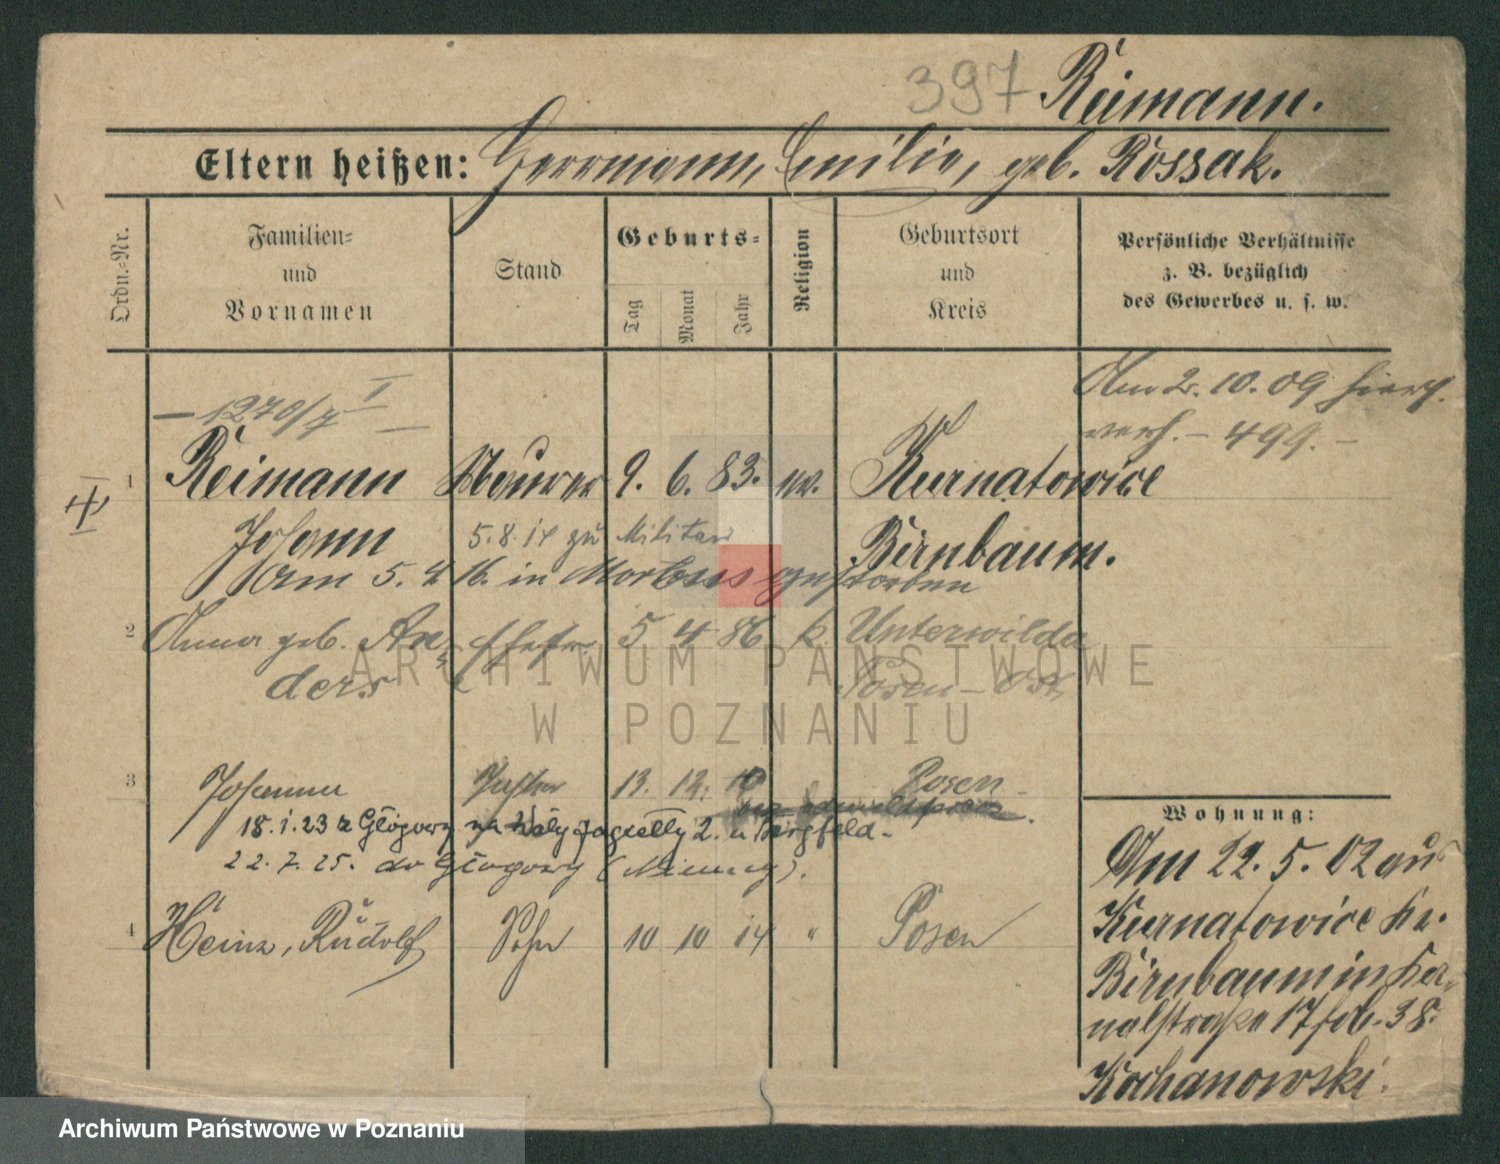 397 Reimann.
Eltern heißen: Herrmann, Emilie, geb. Rossak.
Ordn.-Nr.
Familien-
und
Vornamen
Stand
Geburts-
Tag
Monat
Jahr
Religion
Geburtsort
und
Kreis
Persönliche Verhältnisse
z. B. bezüglich
des Gewerbes u. s. w.
Am 2. 10. 09 hier
verh. - 499. -
- 1270/7 I -
1 Reimann Maurer 9. 6. 83. ev. Kurnatowice
Johann 5.8.14 zu Militär Birnbaum.
Am 5. 4 16. in gestorben
2 Anna geb. An- Ehefr. 5 4 86 k. Unterwilda
ders Posen-Ost
ARCHIWUM PAŃSTWOWE
W POZNANIU
3 Johanna Tochter 13. 12. 10 " Posen
18.1.23 z Głogowy na Wały Jagiełły 2. u Bergfeld.
22.7.25. do Głogowy
4 Heinz, Rudolf Sohn 10 10 14 " Posen
Wohnung:
Am 22. 5. 02 aus
Kurnatowice Kr.
Birnbaum in Ka-
nalstraße 17 38.
Kochanowski.
Archiwum Państwowe w Poznaniu